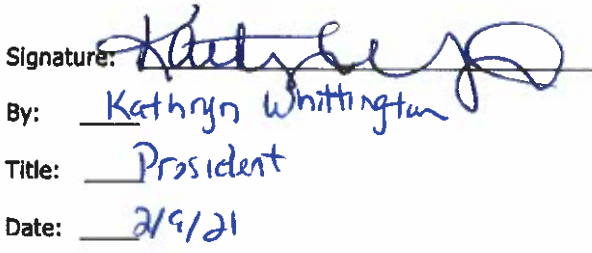 Signature:
By: Kathryn Whittington
Title: President
Date: 2/9/21